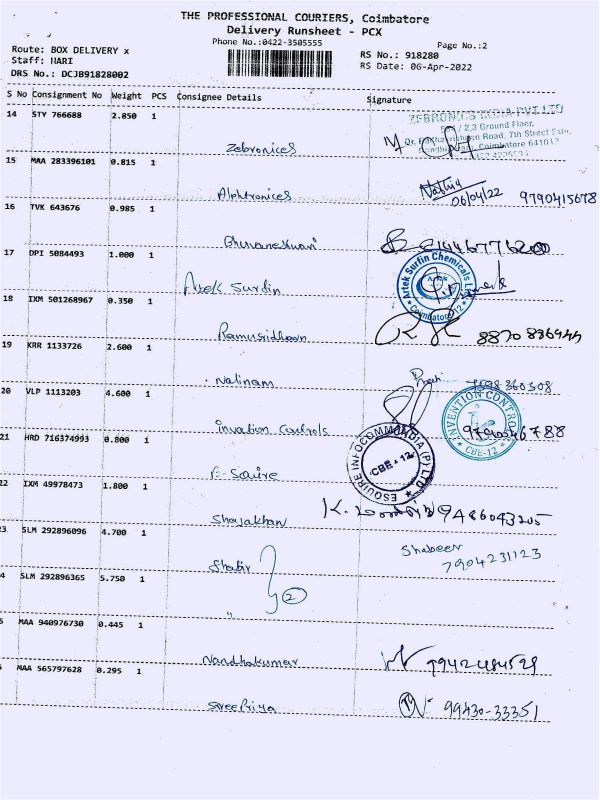 THE PROFESSIONAL COURIERS, Coimbatore
Delivery Runsheet - PCX
Phone No.:0422-3505555
Page No.:2
Route: BOX DELIVERY x
Staff: HARI
DRS No.: DCJB91828002
RS No.: 918280
RS Date: 06-Apr-2022
S No Consignment No Weight PCS Consignee Details Signature
14 STY 766688 2.850 1
Zebronices
ZEBRONICS INDIA PVT LTD
2,3 Ground Floor,
Road, 7th Street Extn,
Coimbatore 641012
15 MAA 283396101 0.815 1
Alphtronices
06/04/22 9790415678
16 TVK 643676 0.985 1
Bhuvaneshwari
17 DPI 5084493 1.000 1
Artek Surfin
Artek Surfin Chemicals Ltd
Coimbatore-12
18 IXM 501268967 0.350 1
Ramusridharan
8870 886944
19 KRR 1133726 2.600 1
Nalinam
7598360508
20 VLP 1113203 4.600 1
invation Controls
INVENTION CONTROL
CBE-12
21 HRD 716374993 0.800 1
E-Squire
ESQUIRE INFOCOMM INDIA (P) LTD
CBE - 12
22 IXM 49978473 1.800 1
Shajakhan
K.
9486043205
23 SLM 292896096 4.700 1
Shabir
Shabeer
7904231123
4 SLM 292896365 5.750 1
"
2
5 MAA 940976730 0.445 1
Nandhakumar
MAA 565797628 0.295 1
Sreepriya
99430-33351